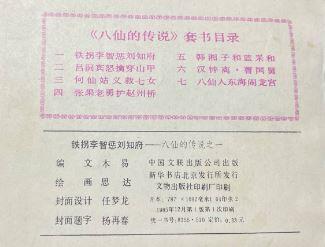 《八仙的传说》套书目录
一 铁拐李智惩刘知府
二 吕洞宾怒擒穿山甲
三 何仙姑义救七女
四 张果老勇护赵州桥
五 韩湘子和蓝采和
六 汉钟离·曹国舅
七 八仙人东海闹龙宫
铁拐李智惩刘知府——八仙的传说之一
编 文 木 易
绘 画 思 达
封面设计 任梦龙
封面题字 杨再春
中国文联出版公司出版
新华书店北京发行所发行
文物出版社印刷厂印刷
开本:787×1092毫米 1/64印张2
1985年12月第1版第1次印刷
统一书号:8355·530 定价:0.33元